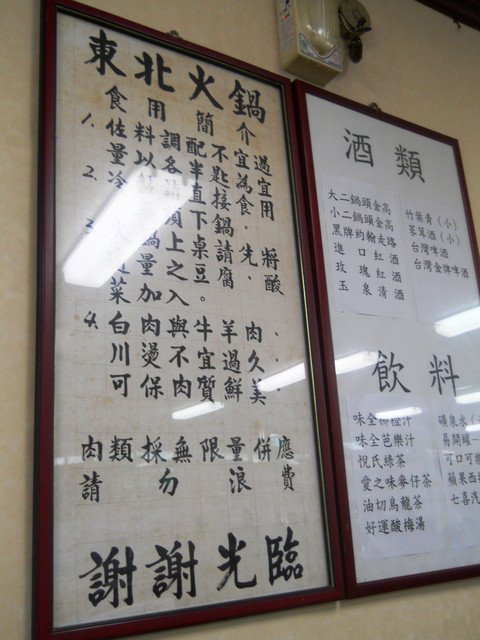 東北火鍋
食用簡介
1. 佐料調配不宜過
量以各半匙為宜
2. 冷
鍋上桌請先將
量之
酸
菜加入豆腐。
4. 白肉與牛羊肉
川燙不宜過久
可保肉質鮮美
肉類採無限量供應
請勿浪費
謝謝光臨
酒類
大二鍋頭金高
小二鍋頭金高
黑牌約翰走路
進口紅酒
玫瑰紅酒
玉泉清酒
竹葉青(小)
台灣啤酒
台灣金牌啤酒
飲料
味全柳橙汁
味全芭樂汁
悅氏綠茶
愛之味麥仔茶
油切烏龍茶
好運酸梅湯
礦泉水
易開罐
可口可
蘋果西
七喜汽